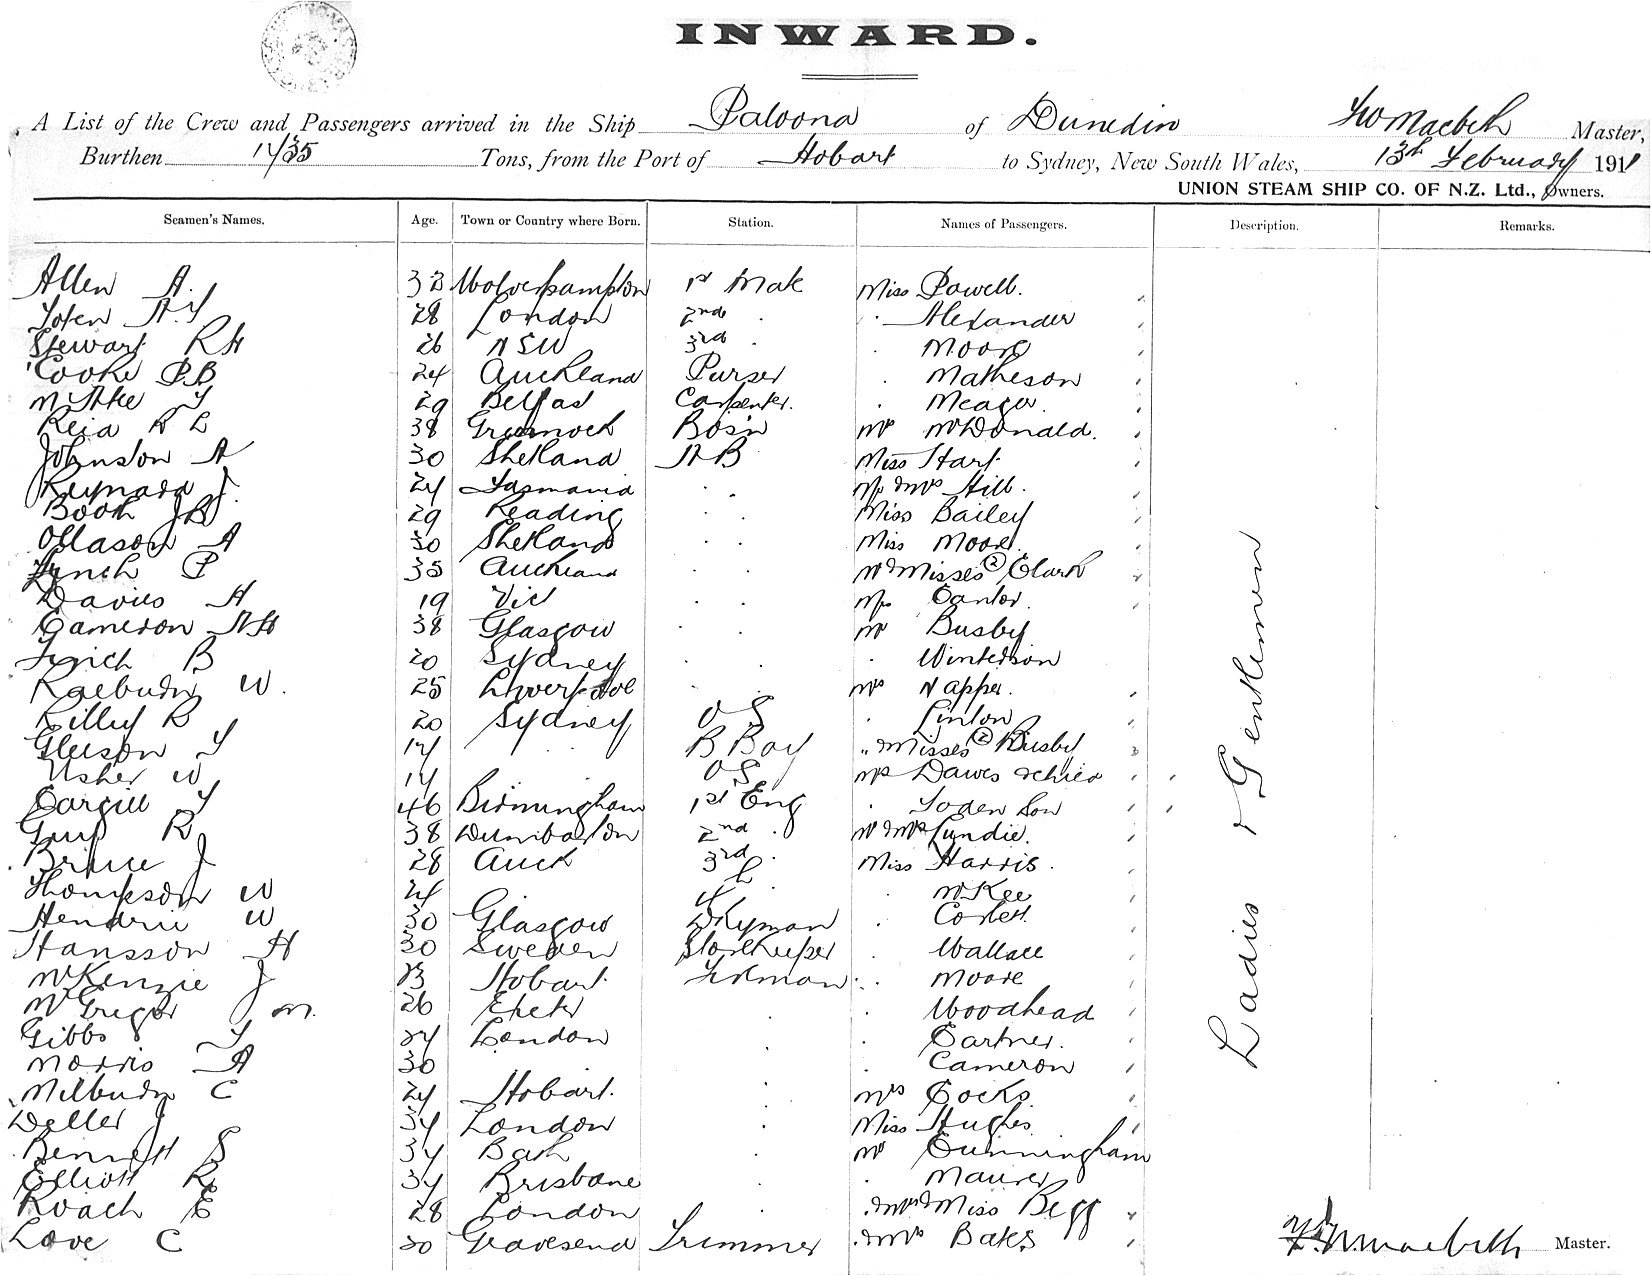 INWARD.
A List of the Crew and Passengers arrived in the Ship Paloona of Dunedin Macbeth Master,
Burthen Tons, from the Port of Hobart to Sydney, New South Wales, 13th February 1911
UNION STEAM SHIP CO. OF N.Z. Ltd., Owners.
Seamen's Names. Age. Town or Country where Born. Station. Names of Passengers. Description. Remarks.
Allen A. 33 Wolverhampton 1st Mate Miss Powell.
28 London 2nd Alexander
Stewart R H 26 NSW 3rd Moore
Cooke P B 24 Auckland Purser Matheson
29 Belfast Carpenter. Meager.
Reid R L 38 Greenock Bosn Mr McDonald.
Johnson A 30 Shetland A B Miss Hart
Kennedy J. 24 Tasmania Mr & Mrs Hill.
Booth J B 29 Reading Miss Bailey
Ollason A 30 Shetland Miss Moore.
Lynch P 35 Auckland Misses (2) Clark
Davies H 19 Vic Cantor.
Cameron A H 38 Glasgow Mr Busby
B 20 Sydney Winterson
Raeburn W. 25 Liverpool Mrs Napper.
Killey R 20 Sydney O S Linton
Gleeson T 17 B Boy Misses (2) Busby
Usher W 17 O S Mrs Dawes & child
Cargill T 46 Birmingham 1st Eng Loden Son
R 38 Dumbarton 2nd Mr & Mrs Lundie.
Bruce J 28 Auck 3rd Miss Harris.
Thompson W 24 4 McKee
Hendrie W 30 Glasgow Dkyman
Hansson H 30 Sweden Storekeeper Wallace
McKenzie J 23 Hobart. Fireman Moore
McGregor J M. 26 Exeter Woodhead
Gibbs T 24 London Gartner.
Morris A 30 Cameron
Milburn C 24 Hobart. Mrs Cocks.
Weller J 34 London Miss Hughes
Bennett S 34 Bath Mr Cunningham
Elliott R 34 Brisbane Maurer
Roach E 28 London Mrs & Miss Begg
Love C 30 Gravesend Trimmer Mrs Bates
Ladies & Gentlemen
Macbeth Master.